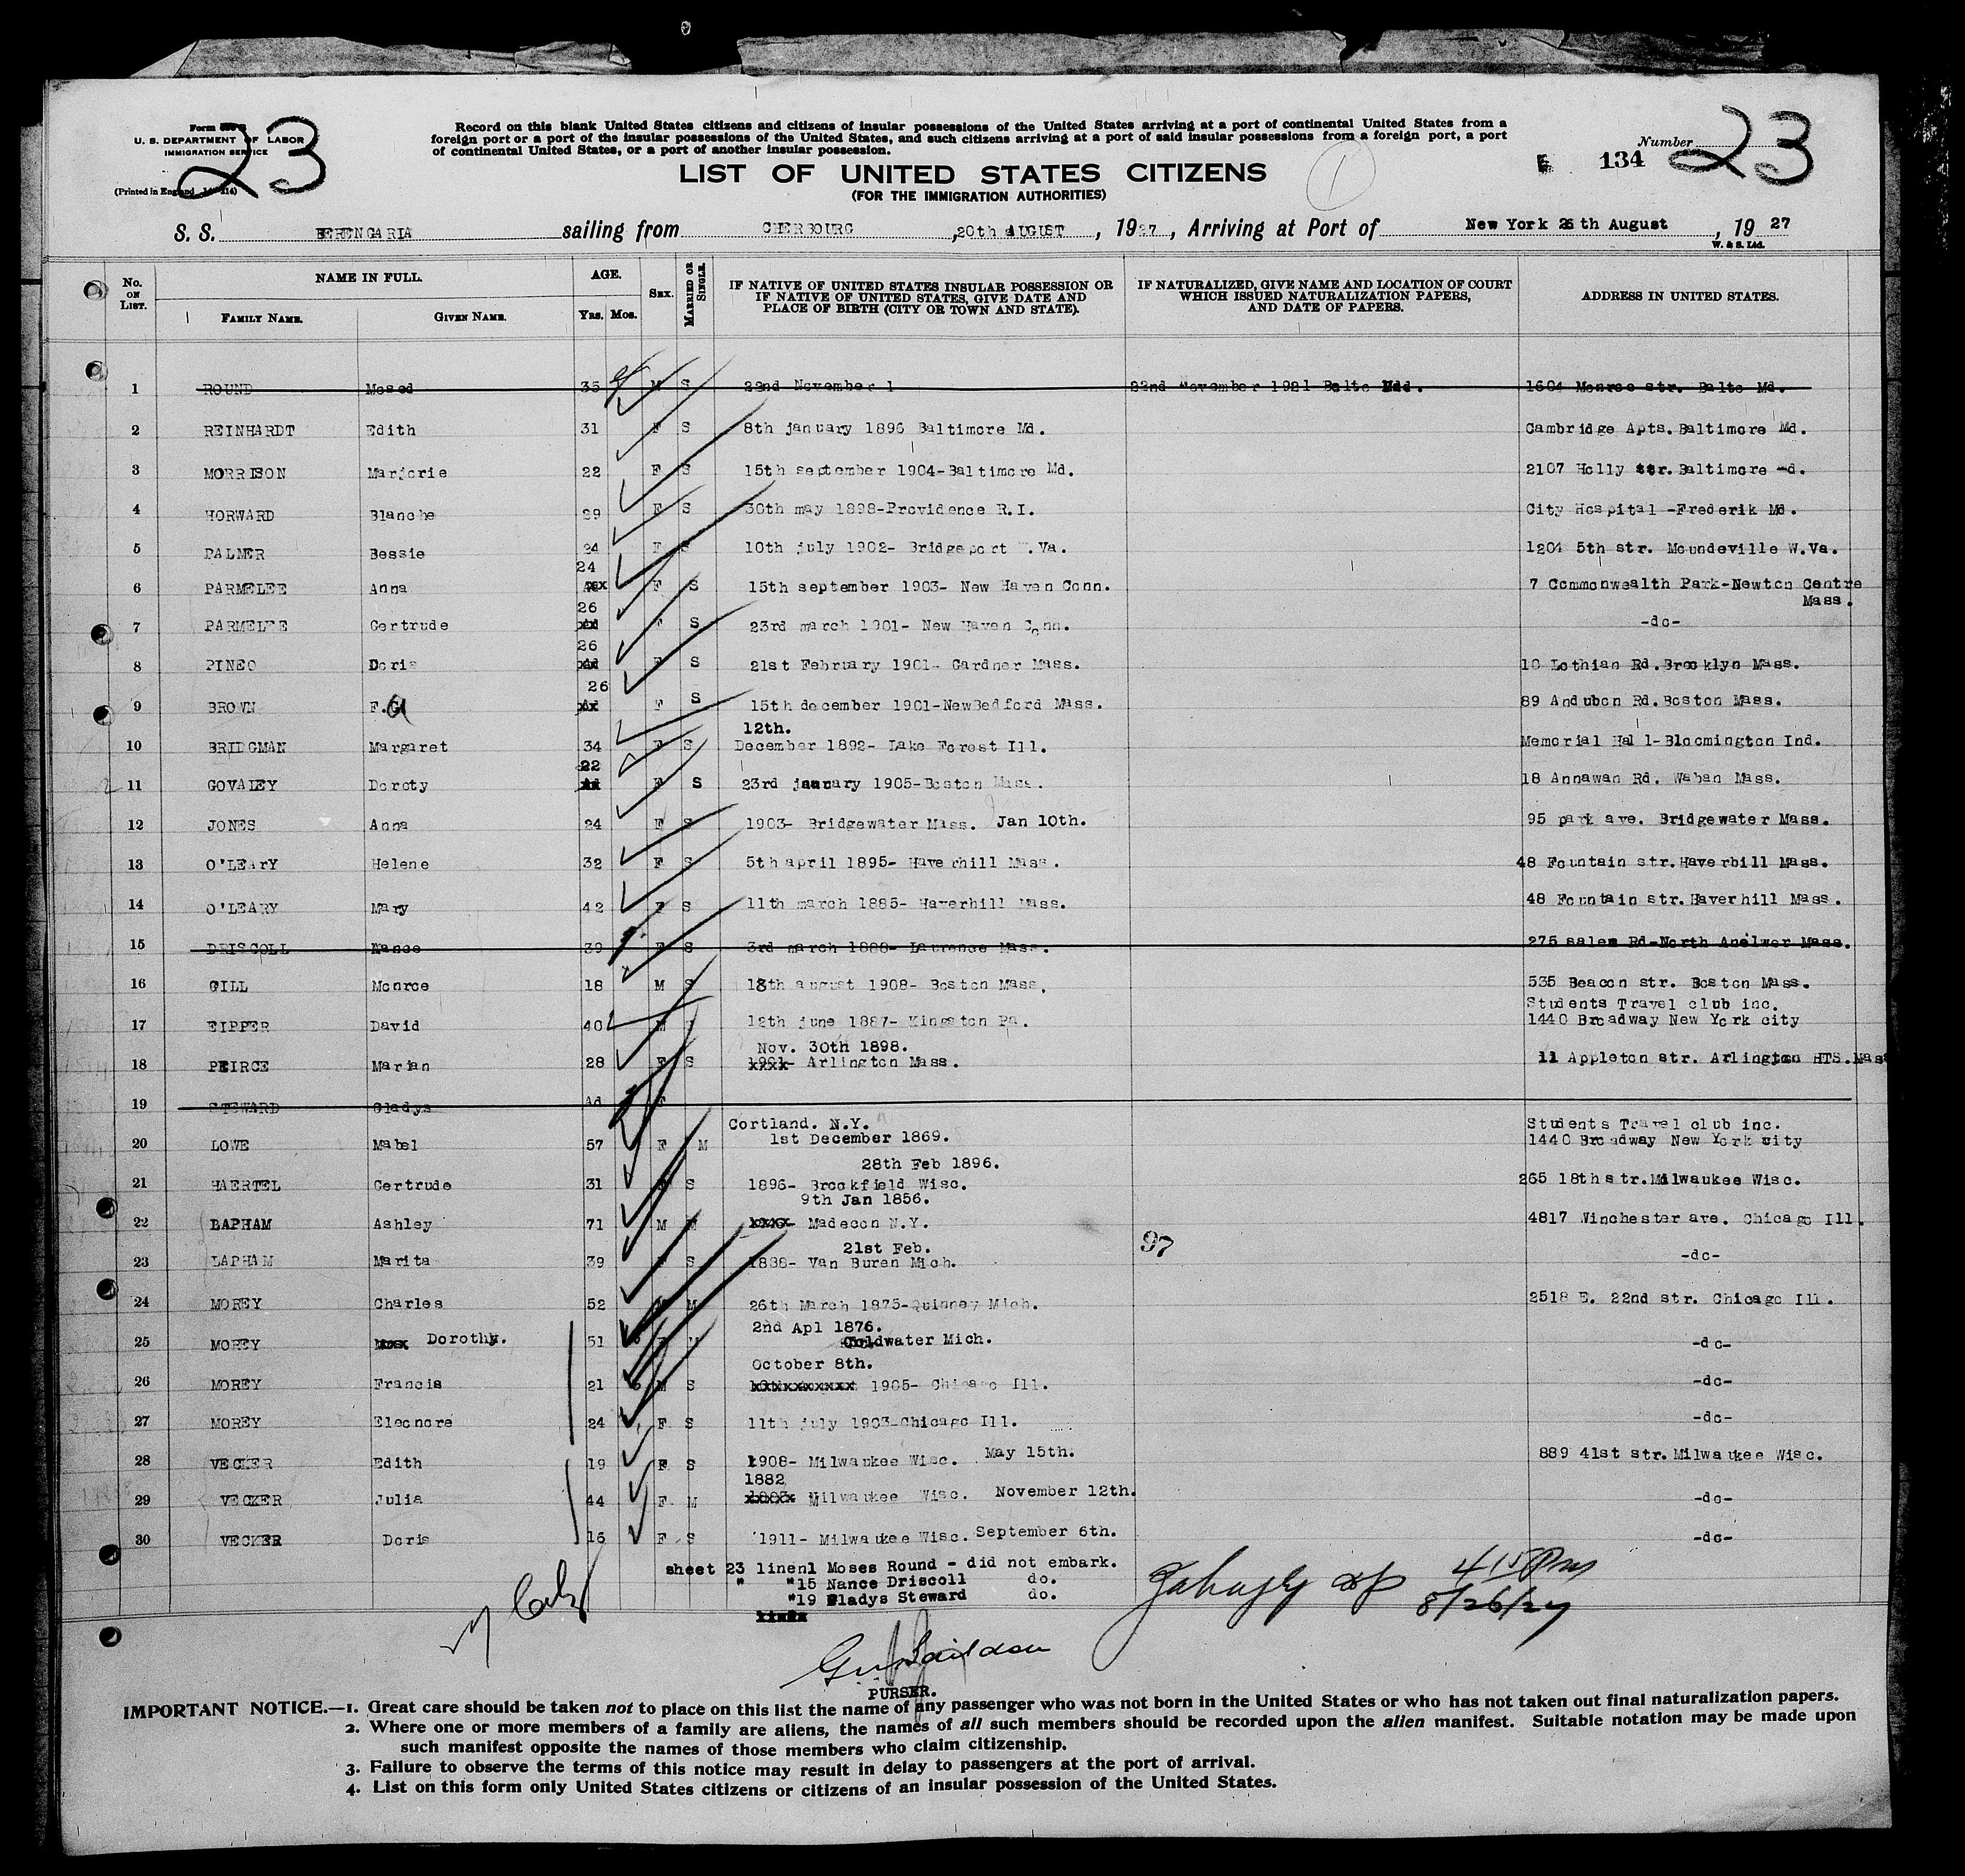 23
Form
U. S. DEPARTMENT OF LABOR
IMMIGRATION SERVICE
(Printed in England
Record on this blank United States citizens and citizens of insular possessions of the United States arriving at a port of continental United States from a
foreign port or a port of the insular possessions of the United States, and such citizens arriving at a port of said insular possessions from a foreign port, a port
of continental United States, or a port of another insular possession.
LIST OF UNITED STATES CITIZENS
(FOR THE IMMIGRATION AUTHORITIES)
1
E 134
Number 23
S. S. BERENGARIA sailing from CHERBOURG, 20th AUGUST, 1927, Arriving at Port of New York 26th August, 1927
W. & S. Ltd.
No. ON LIST. NAME IN FULL. FAMILY NAME. GIVEN NAME. AGE. Yrs. Mos. SEX. MARRIED OR SINGLE.
IF NATIVE OF UNITED STATES INSULAR POSSESSION OR
IF NATIVE OF UNITED STATES, GIVE DATE AND
PLACE OF BIRTH (CITY OR TOWN AND STATE).
IF NATURALIZED, GIVE NAME AND LOCATION OF COURT
WHICH ISSUED NATURALIZATION PAPERS,
AND DATE OF PAPERS.
ADDRESS IN UNITED STATES.
1 ROUND Mosed 35 M S 22nd November 1 22nd November 1921 Balto Mdd. 1604 Monroe str. Balto Md.
2 REINHARDT Edith 31 F S 8th january 1896 Baltimore Md. Cambridge Apts. Baltimore Md.
3 MORRISON Marjorie 22 F S 15th september 1904-Baltimore Md. 2107 Holly str. Baltimore Md.
4 HORWARD Blanche 29 F S 30th may 1898-Providence R.I. City Hospital -Frederik Md.
5 PALMER Bessie 24 F S 10th july 1902- Bridgeport W.Va. 1204 5th str. Moundeville W.Va.
24
6 PARMELEE Anna F S 15th september 1903- New Haven Conn. 7 Commonwealth Park-Newton Centre
Mass.
26
7 PARMELEE Gertrude F S 23rd march 1901- New Haven Conn. -do-
26
8 PINEO Doris F S 21st February 1901- Gardner Mass. 10 Lothian Rd. Brooklyn Mass.
26
9 BROWN F.G F S 15th december 1901-NewBedford Mass. 89 Andubon Rd. Boston Mass.
12th.
10 BRIDGMAN Margaret 34 F S December 1892- Lake Forest Ill. Memorial Hall-Bloomington Ind.
22
11 GOVALEY Doroty Ad F S 23rd january 1905-Boston Mass. 18 Annawan Rd. Waban Mass.
12 JONES Anna 24 F S 1903- Bridgewater Mass. Jan 10th. 95 park ave. Bridgewater Mass.
13 O'LEArY Helene 32 F S 5th april 1895- Haverhill Mass. 48 Fountain str. Haverbill Mass.
14 O'LEARY Mary 42 F S 11th march 1885- Haverhill Mass. 48 Fountain str. Haverhill Mass.
15 DRISCOLL Nance 39 F S 3rd march 1888- Laurence Mass. 275 salem Rd-North Anelwer Mass.
16 GILL Monroe 18 M S 18th august 1908- Boston Mass. 535 Beacon str. Boston Mass.
Students Travel club inc.
17 EIPPER David 40 M 12th june 1887- Kingston Pa. 1440 Broadway New York city
Nov. 30th 1898.
18 PEIRCE Marian 28 F S 1901- Arlington Mass. 11 Appleton str. Arlington HTS. Mass
19 STEWARD Gladys Ad F
Cortland. N.Y. Students Travel club inc.
20 LOWE Mabel 57 F M 1st December 1869. 1440 Broadway New York city
28th Feb 1896.
21 HAERTEL Gertrude 31 F S 1896- Brookfield Wisc. 265 18th str. Milwaukee Wisc.
9th Jan 1856.
22 BAPHAM Ashley 71 M M Madecon N.Y. 4817 Winchester ave. Chicago Ill.
21st Feb. 97
23 LAPHAM Marita 39 F S 1888- Van Buren Mich. -do-
24 MOREY Charles 52 M M 26th March 1875-Quinney Mich. 2518 E. 22nd str. Chicago Ill.
2nd Apl 1876.
25 MOREY Dorothy. 51 F M Coldwater Mich. -do-
October 8th.
26 MOREY Francis 21 M S 1905- Chicago Ill. -do-
27 MOREY Eleonore 24 F S 11th july 1903-Chicago Ill. -do-
28 VECKER Edith 19 F S 1908- Milwaukee Wisc. May 15th. 889 41st str. Milwaukee Wisc.
1882
29 VECKER Julia 44 F M Milwaukee Wisc. November 12th. -do-
30 VECKER Doris 16 F S 1911- Milwaukee Wisc. September 6th. -do-
sheet 23 linen1 Moses Round - did not embark.
" "15 Nance Driscoll do.
"19 Gladys Steward do.
415 Pm
8/26/27
PURSER.
IMPORTANT NOTICE.—1. Great care should be taken not to place on this list the name of any passenger who was not born in the United States or who has not taken out final naturalization papers.
2. Where one or more members of a family are aliens, the names of all such members should be recorded upon the alien manifest. Suitable notation may be made upon
such manifest opposite the names of those members who claim citizenship.
3. Failure to observe the terms of this notice may result in delay to passengers at the port of arrival.
4. List on this form only United States citizens or citizens of an insular possession of the United States.